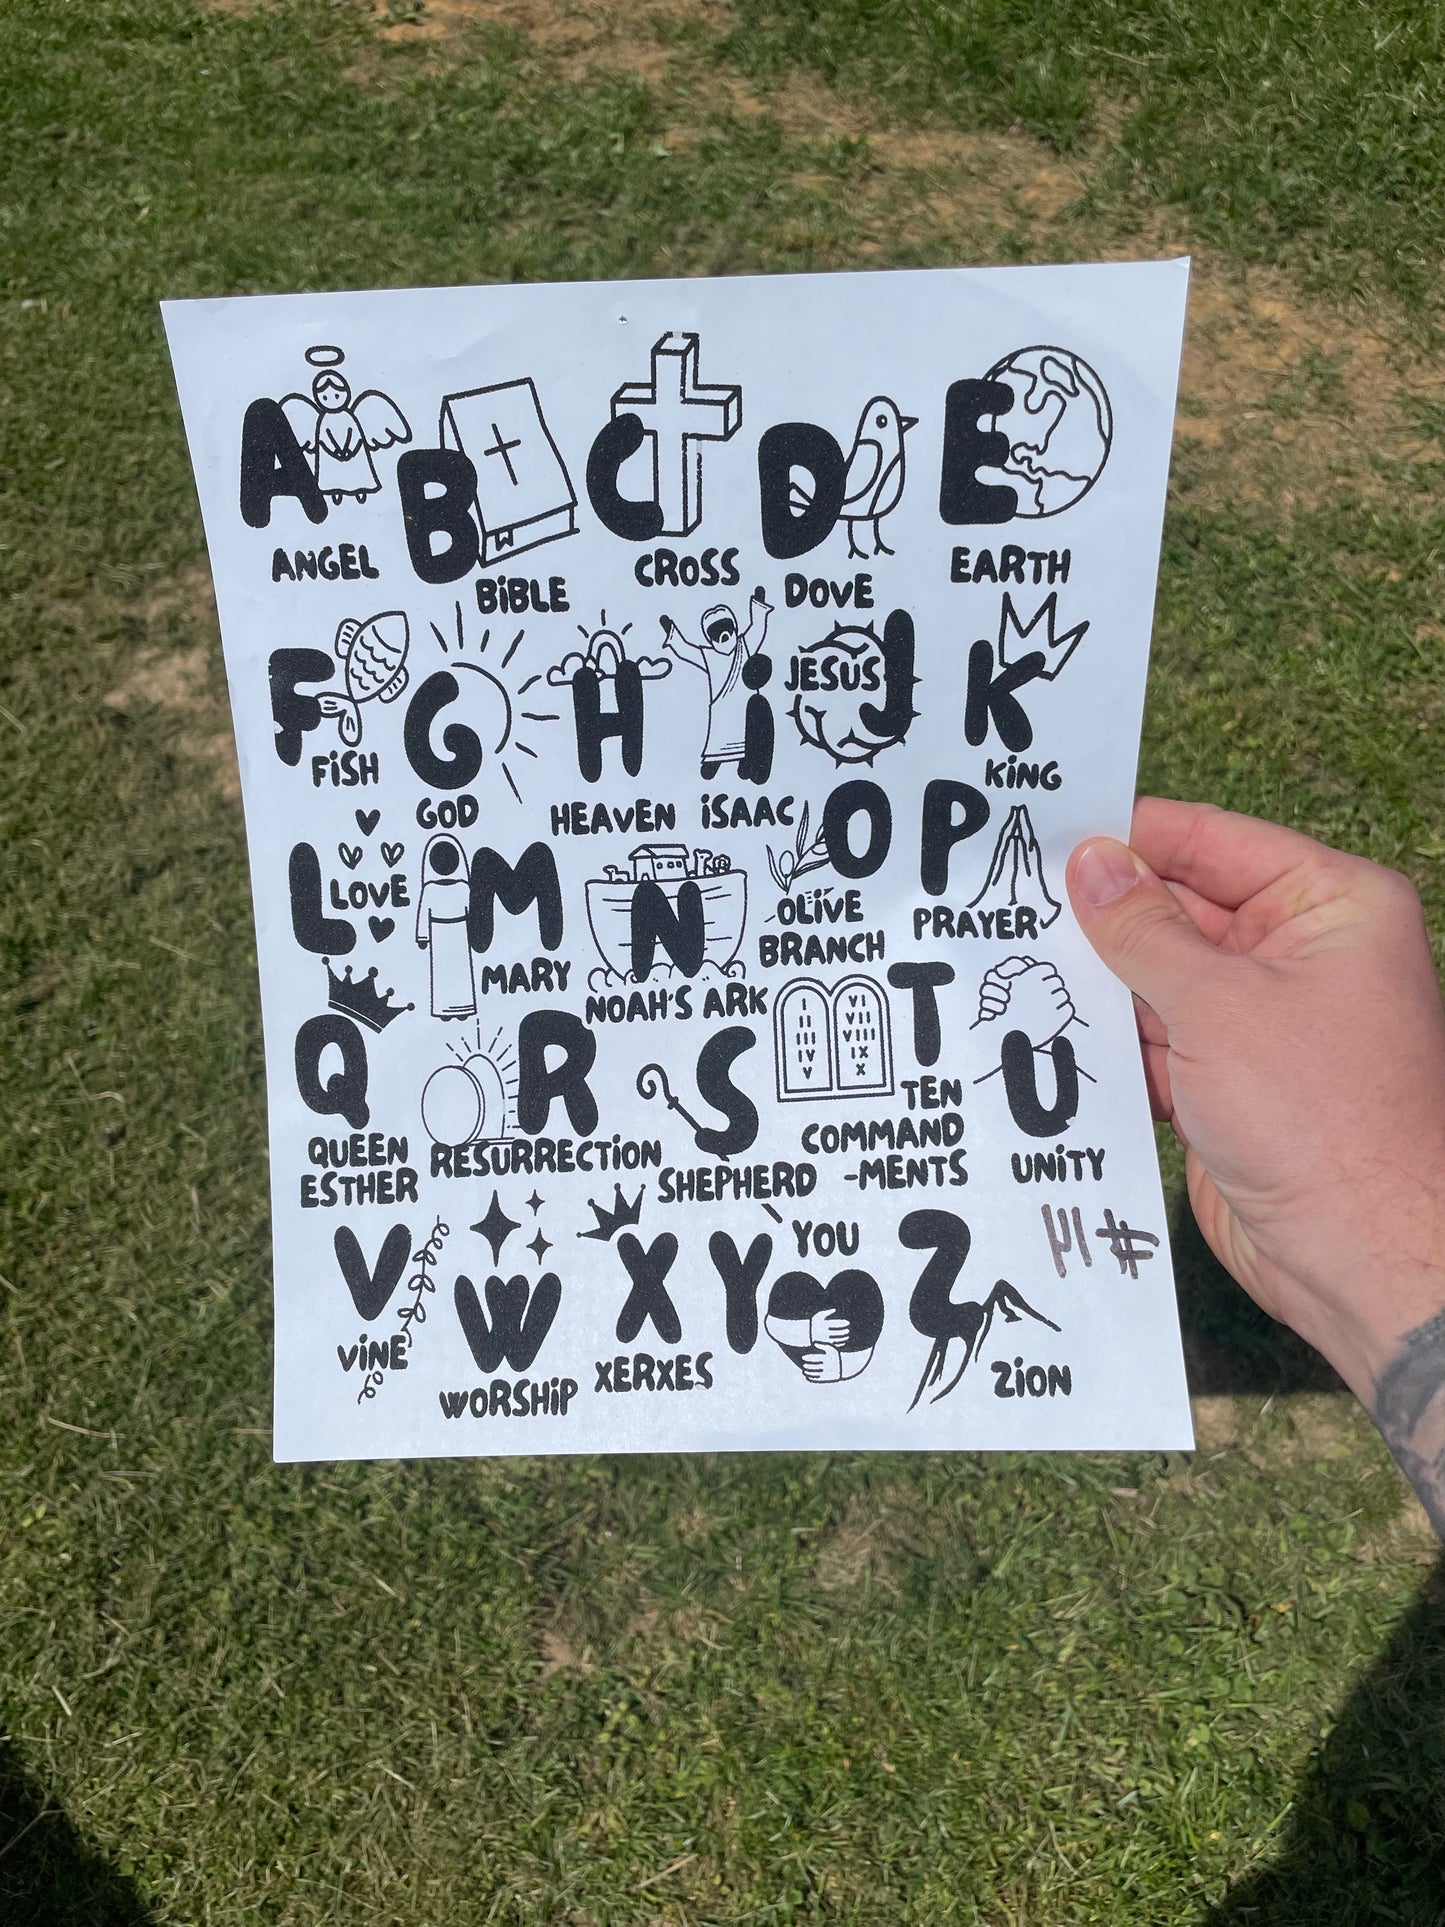 A
ANGEL
B
BiBLE
C
CROSS
D
DOVE
E
EARTH
F
FiSH
G
GOD
H
HEAVEN
i
iSAAC
J
JESUS
K
KiNG
L
LOVE
M
MARY
N
NOAH'S ARK
O
OLiVE
BRANCH
P
PRAYER
Q
QUEEN
ESTHER
R
RESURRECTiON
S
SHEPHERD
T
I
II
III
IV
V
VI
VII
VIII
IX
X
TEN
COMMAND
-MENTS
U
UNiTY
V
ViNE
W
WORSHiP
X
XERXES
Y
YOU
Z
ZiON